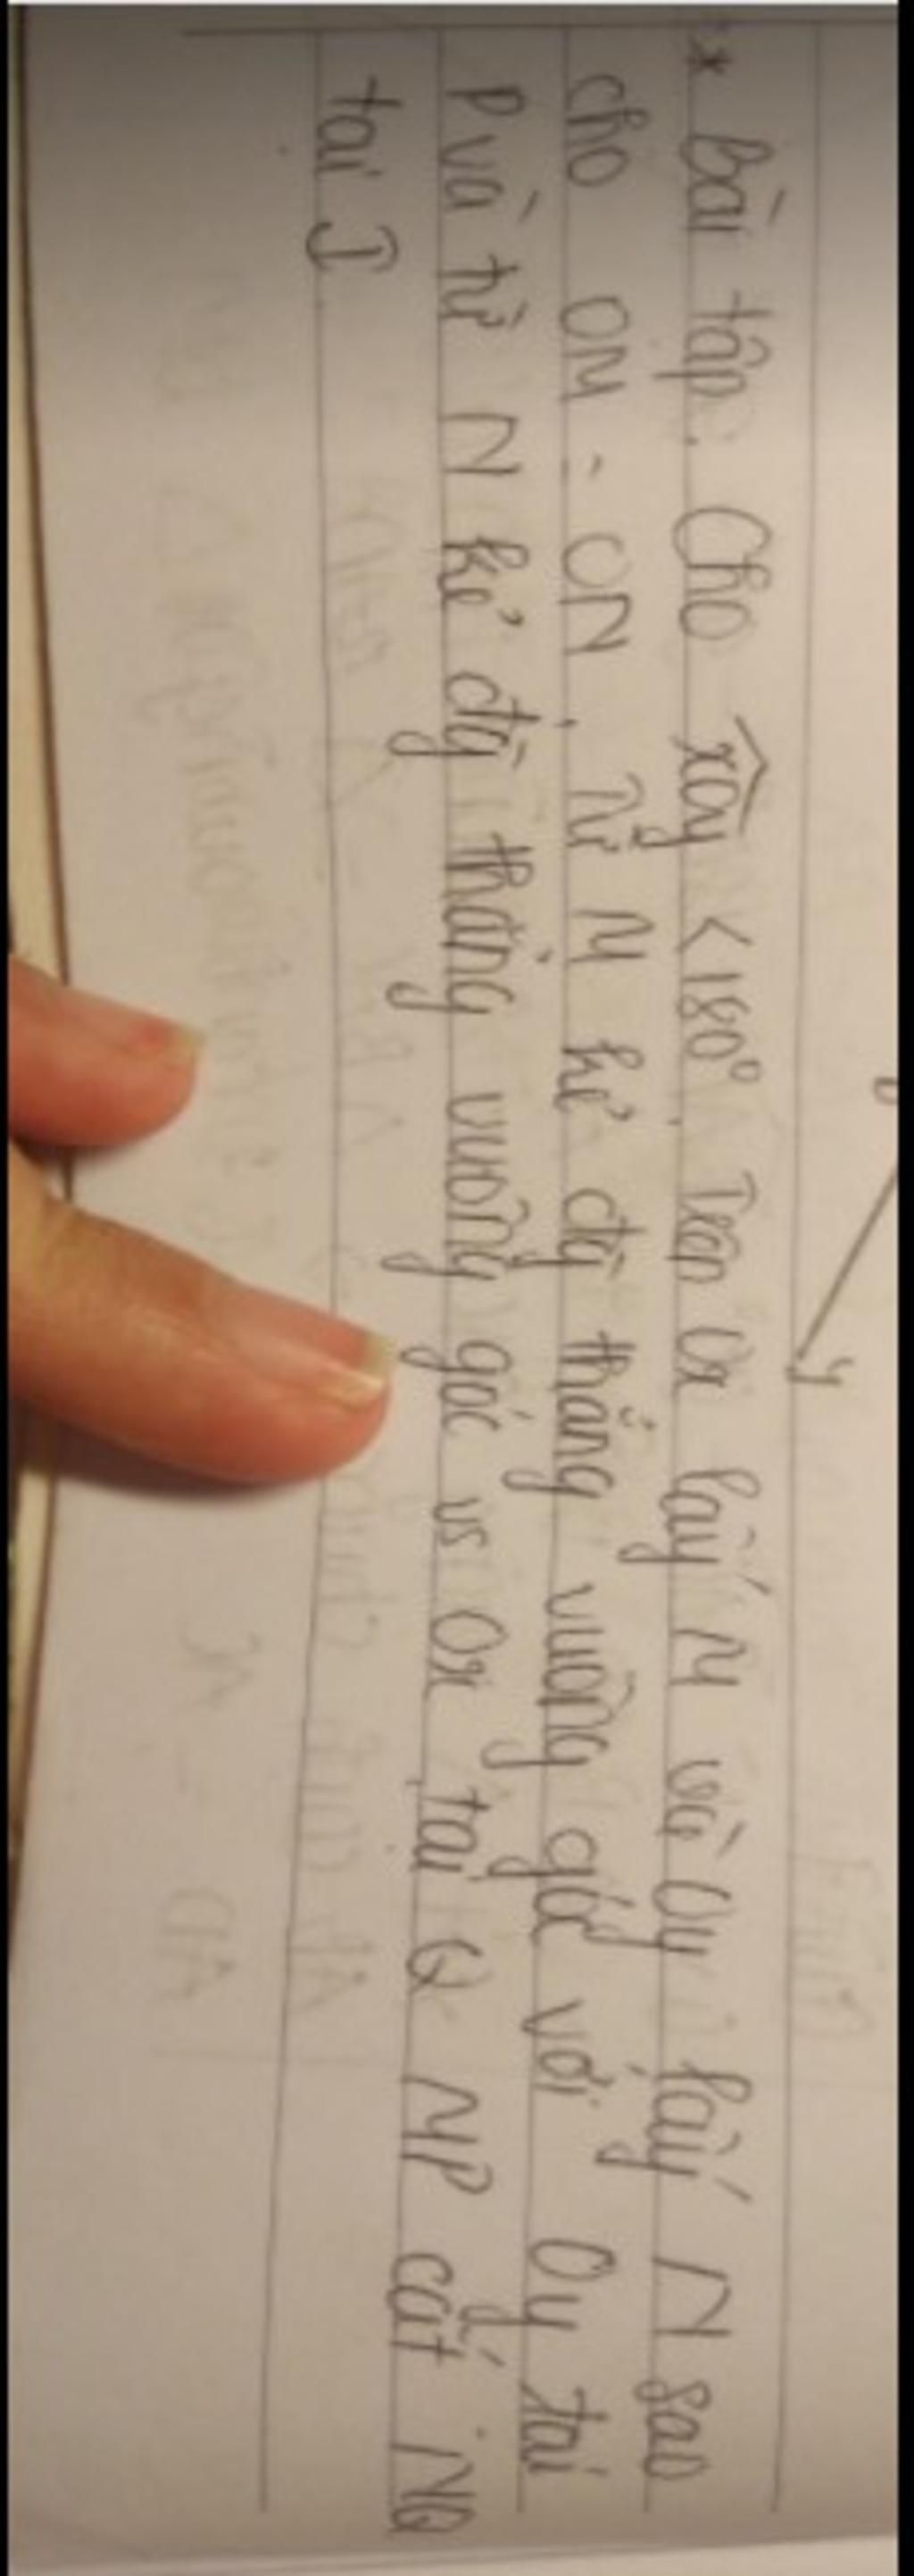 * Bài tập: Cho xOy < 180° Trên Ox lấy M và Oy lấy N sao
cho OM = ON. Từ M kẻ đg thẳng vuông góc với Oy tại
P và từ N kẻ đg thẳng vuông góc vs Ox tại Q MP cắt NQ
tại I
y